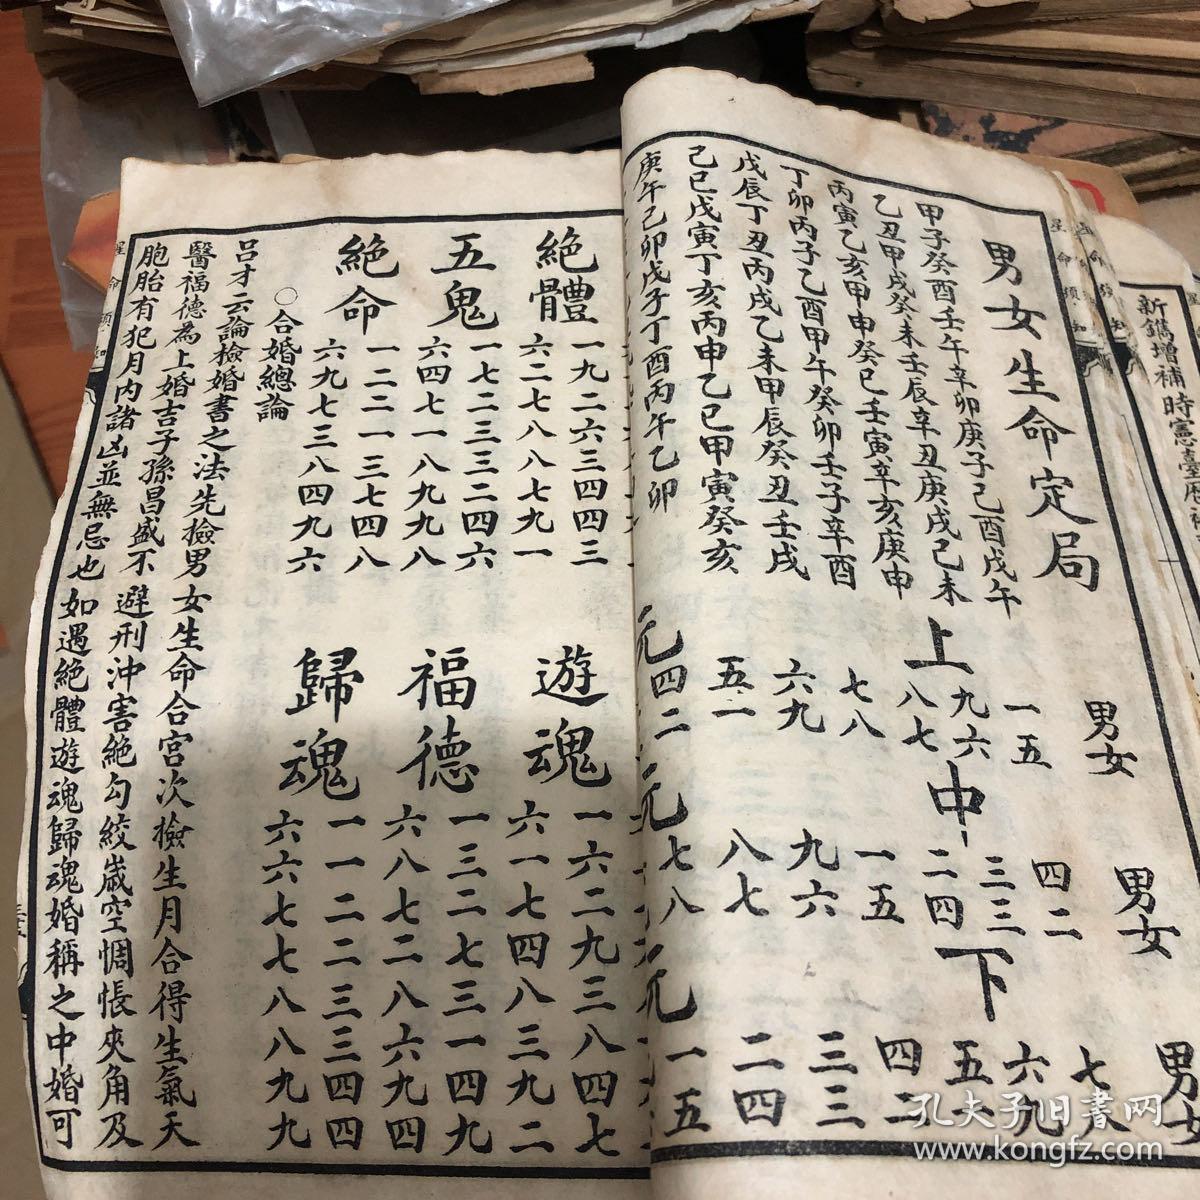 新鐫增補時憲臺曆
男女生命定局
甲子癸酉壬午辛卯庚子己酉戊午
乙丑甲戌癸未壬辰辛丑庚戌己未
丙寅乙亥甲申癸巳壬寅辛亥庚申
丁卯丙子乙酉甲午癸卯壬子辛酉
戊辰丁丑丙戌乙未甲辰癸丑壬戌
己巳戊寅丁亥丙申乙巳甲寅癸亥
庚午己卯戊子丁酉丙午乙卯
上元
男女
一五
九六
八七
七八
六九
五一
四二
中元
男女
四二
三三
二四
一五
九六
八七
七八
下元
男女
七八
六九
五一
四二
三三
二四
一五
絕體
一九二六三四四三
六二七八八七九一
遊魂
一六二九三八四七
六一七四八三九二
五鬼
一七二三三二四六
六四七一八九九八
福德
一三二七三一四九
六八七二八六九四
絕命
一二二一三七四八
六九七三八四九六
歸魂
一一二二三三四四
六六七七八八九九
○合婚總論
呂才云論檢婚書之法先檢男女生命合宮次檢生月合得生氣天
醫福德為上婚吉子孫昌盛不避刑沖害絕勾絞歲空惆悵夾角及
胞胎有犯月內諸凶並無忌也如遇絕體遊魂歸魂婚稱之中婚可
星命須知
孔夫子旧書网
www.kongfz.com